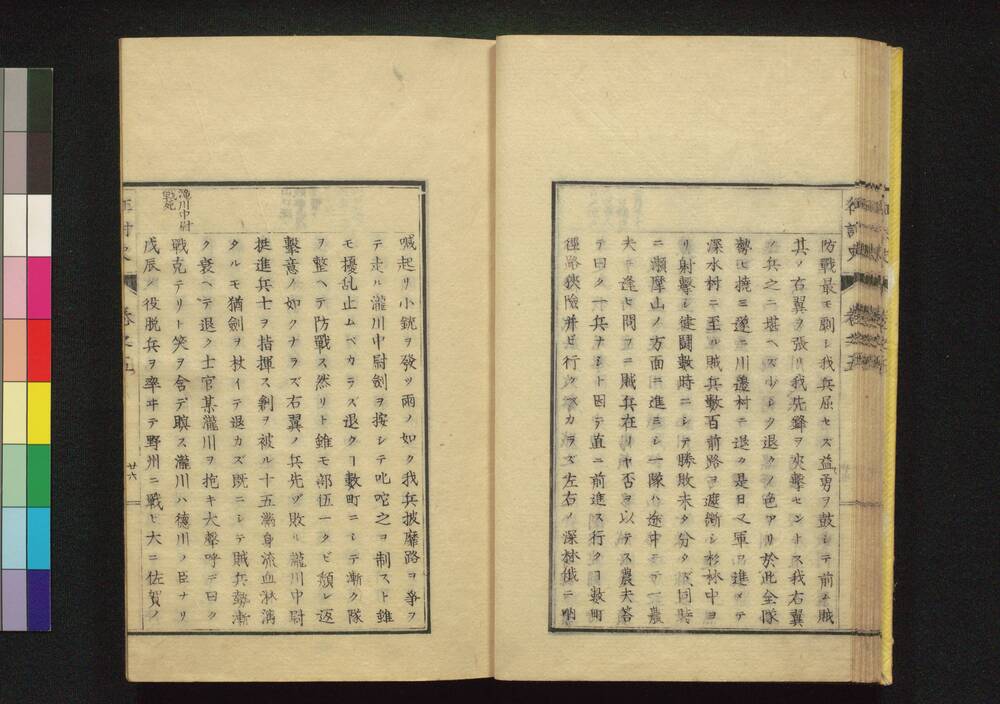 防戰最モ劇シ我兵屈セズ益勇ヲ鼓シテ前ム賊
其ノ右翼ヲ張リ我先鋒ヲ夾擊セントス我右翼
ノ兵之ニ堪ヘズ少シク退クノ色アリ於此全隊
深水村ニ至ル賊兵數百前路ヲ遮斷シ杉林中ヨ
リ射擊シ徒鬪數時ニシテ勝敗未タ分タズ同時
ニ瀬摩山ノ方面ニ進ミシ一隊ハ途中ニテ一農
夫ニ逢ヒ問フニ賊兵在リヤ否ヲ以テス農夫荅
テ曰ク一兵ナシト因テ直ニ前進ス行クヿ數町
徑路狹險并ビ行クベカラズ左右ノ深林俄ニ吶
喊起リ小銃ヲ發ツ雨ノ如ク我兵披靡路ヲ爭フ
テ走ル瀧川中尉劍ヲ按シテ叱咤之ヲ制スト雖
モ擾乱止ムベカラズ退クヿ數町ニシテ漸ク隊
ヲ整ヘテ防戰ス然リト雖モ部伍一タビ頽レ返
擊意ノ如クナラズ右翼ノ兵先ヅ敗ル瀧川中尉
挺進兵士ヲ指揮ス創ヲ被ル十五滿身流血淋漓
タルモ猶劍ヲ杖イテ退カズ既ニシテ賊兵勢漸
ク衰ヘテ退ク士官某瀧川ヲ抱キ大聲呼デ曰ク
戰克テリト笑ヲ含デ瞑ス瀧川ハ德川ノ臣ナリ
戊辰ノ役脱兵ヲ率ヰテ野州ニ戰ヒ大ニ佐賀ノ
瀧川中尉
戰死
廿六